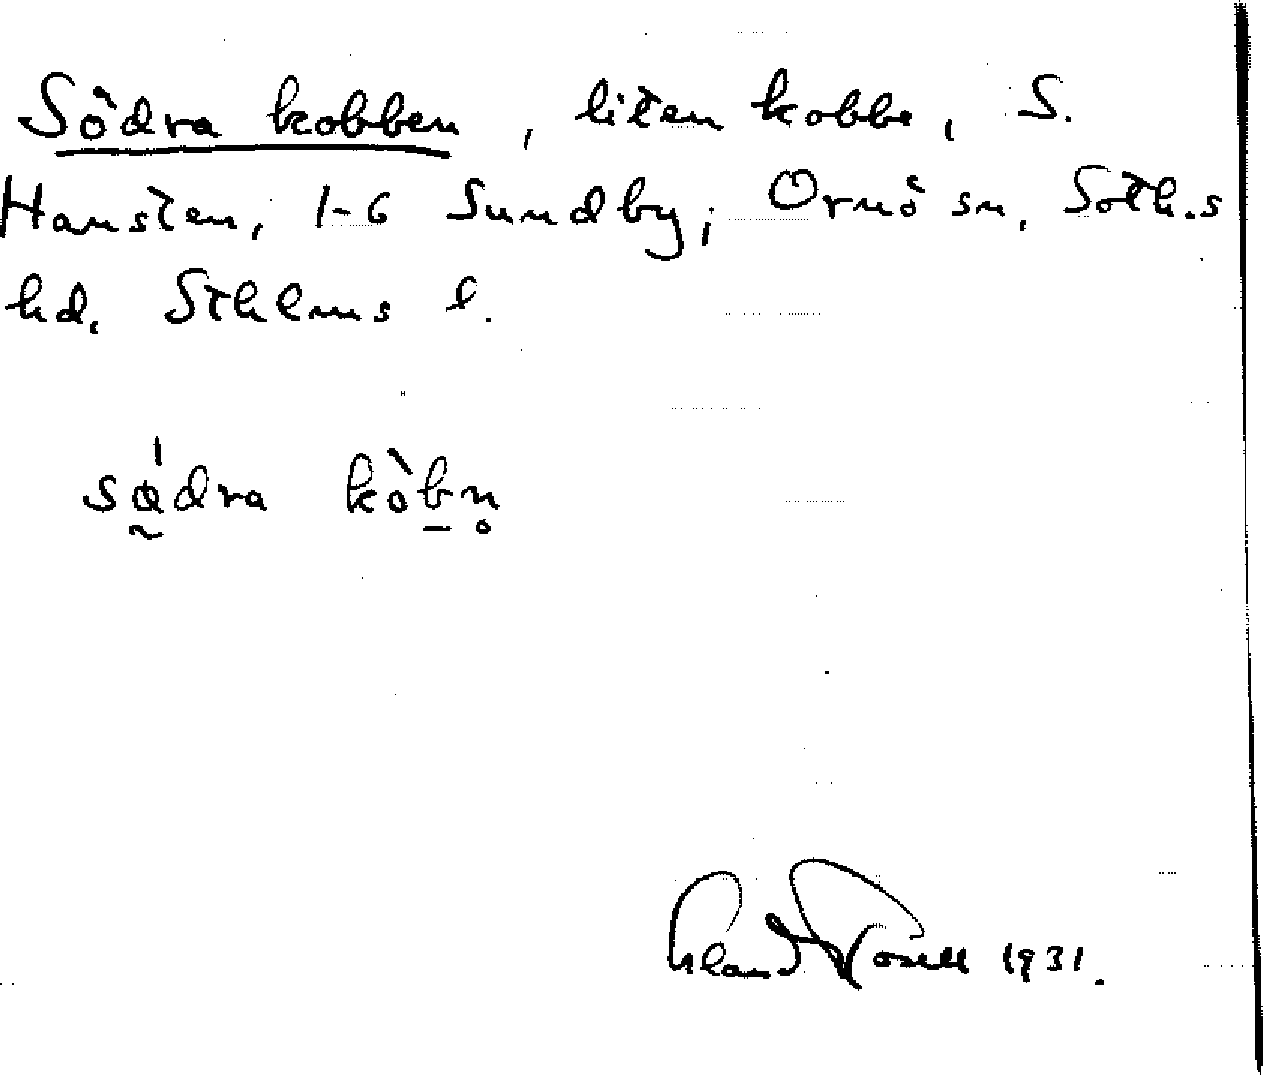 Södra kobben, liten kobbe, S.
Hansten, 1-6 Sundby, Ornö sn, Soth.s
hd. Sthlms l.
södra kòbn̥
1931.